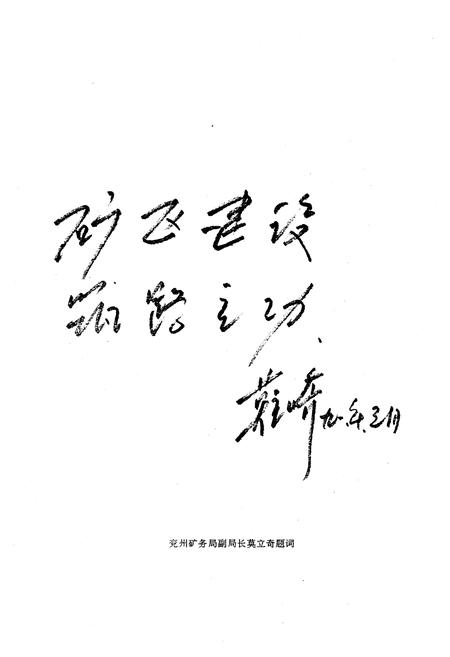 矿区建设
铁路立功
莫立奇 九一年三月
兖州矿务局副局长莫立奇题词